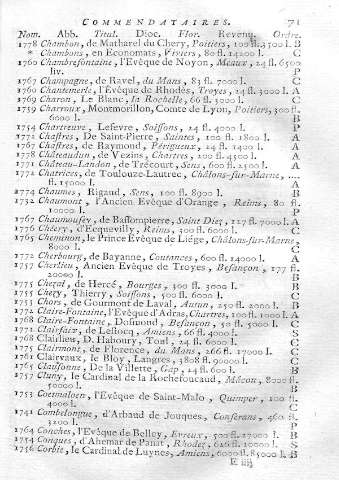 COMMENDATAIRES. 71
Nom. Abb. Titul. Dioc. Flor. Revenu. Ordre.
1778 Chambon, de Matharel du Chery, Poitiers, 100 fl. 3500 l. B
* Chambons, en Economats, Viviers, 80 fl. 14200 l. C
1760 Chambrefontaine, l'Evêque de Noyon, Meaux, 24 fl. 6500
liv. P
1767 Champagne, de Ravel, du Mans, 83 fl. 7000 l. C
1760 Chantemerle, l'Evêque de Rhodès, Troyes, 24 fl. 3000 l. A
1769 Charon, Le Blanc, la Rochelle, 66 fl. 5000 l. C
1759 Charroux, Montmorillon, Comte de Lyon, Poitiers, 300 fl.
6000 l. B
1754 Chartreuve, Lefevre, Soissons, 24 fl. 4000 l. P
1772 Chastres, De Saint-Pierre, Saintes, 100 fl. 1800 l. A
1767 Chastres, de Raymond, Périgueux, 24 fl. 1400 l. A
1778 Châteaudun, de Vezins, Chartres, 200 fl. 4500 l. A
1771 Château-Landon, de Trécourt, Sens, 600 fl. 2500 l. A
1772 Chatrices, de Toulouze-Lautrec, Châlons-sur-Marne, ....
fl. 15000 l. A
1774 Chaumes, Rigaud, Sens, 100 fl. 8900 l. B
1732 Chaumont, l'Ancien Evêque d'Orange, Reims, 80 fl.
10000 l. P
1767 Chaumousey, de Bassompierre, Saint Diez, 127 fl. 7000 l. A
1776 Chéery, d'Ecquevilly, Reims, 300 fl. 6000 l. C
1765 Cheminon, le Prince Evêque de Liége, Châlons-sur-Marne
8000 l. C
1772 Cherbourg, de Bayanne, Coutances, 600 fl. 14000 l. A
1757 Cherlieu, Ancien Evêque de Troyes, Besançon, 177 fl.
20000 l. C
1775 Chezal, de Hercé, Bourges, 300 fl. 3000 l. B
1755 Chezy, Thierry, Soissons, 500 fl. 6000 l. B
1755 Chors, de Gourmont de Laval, Autun, 250 fl. 2000 l. B
1772 Claire-Fontaine, l'Evêque d'Adras, Chartres, 100 fl. 1000 l. A
1768 Claire-Fontaine, Dosmond, Besançon, 50 fl. 5000 l. C
1772 Clairfaix, de Lestocq, Amiens, 66 fl. 4000 l. S
1768 Clairlieu, D. Haboury, Toul, 24 fl. 6000 l. C
1775 Clairmont, de Florence, du Mans, 266 fl. 17000 l. C
1761 Clairvaux, le Bloy, Langres, 3808 fl. 90000 l. C
1765 Clausonne, De la Villette, Gap, 24 fl. 600 l. B
1757 Cluny, le Cardinal de la Rochefoucaud, Mâcon, 8000 fl.
50000 l. B
1755 Coetmaloen, l'Evêque de Saint-Malo, Quimper, 100 fl.
4000 l. C
1742 Combelongue, d'Arbaud de Jouques, Conserans, 460 fl.
3200 l. P
1764 Conches, l'Evêque de Belley, Evreux, 500 fl. 17000 l. B
1754 Conques, d'Ahemar de Panat, Rhodez, 626 fl. 10000 l. S
1756 Corbie, le Cardinal de Luynes, Amiens, 6000 fl. 85000 l. B
E iiij